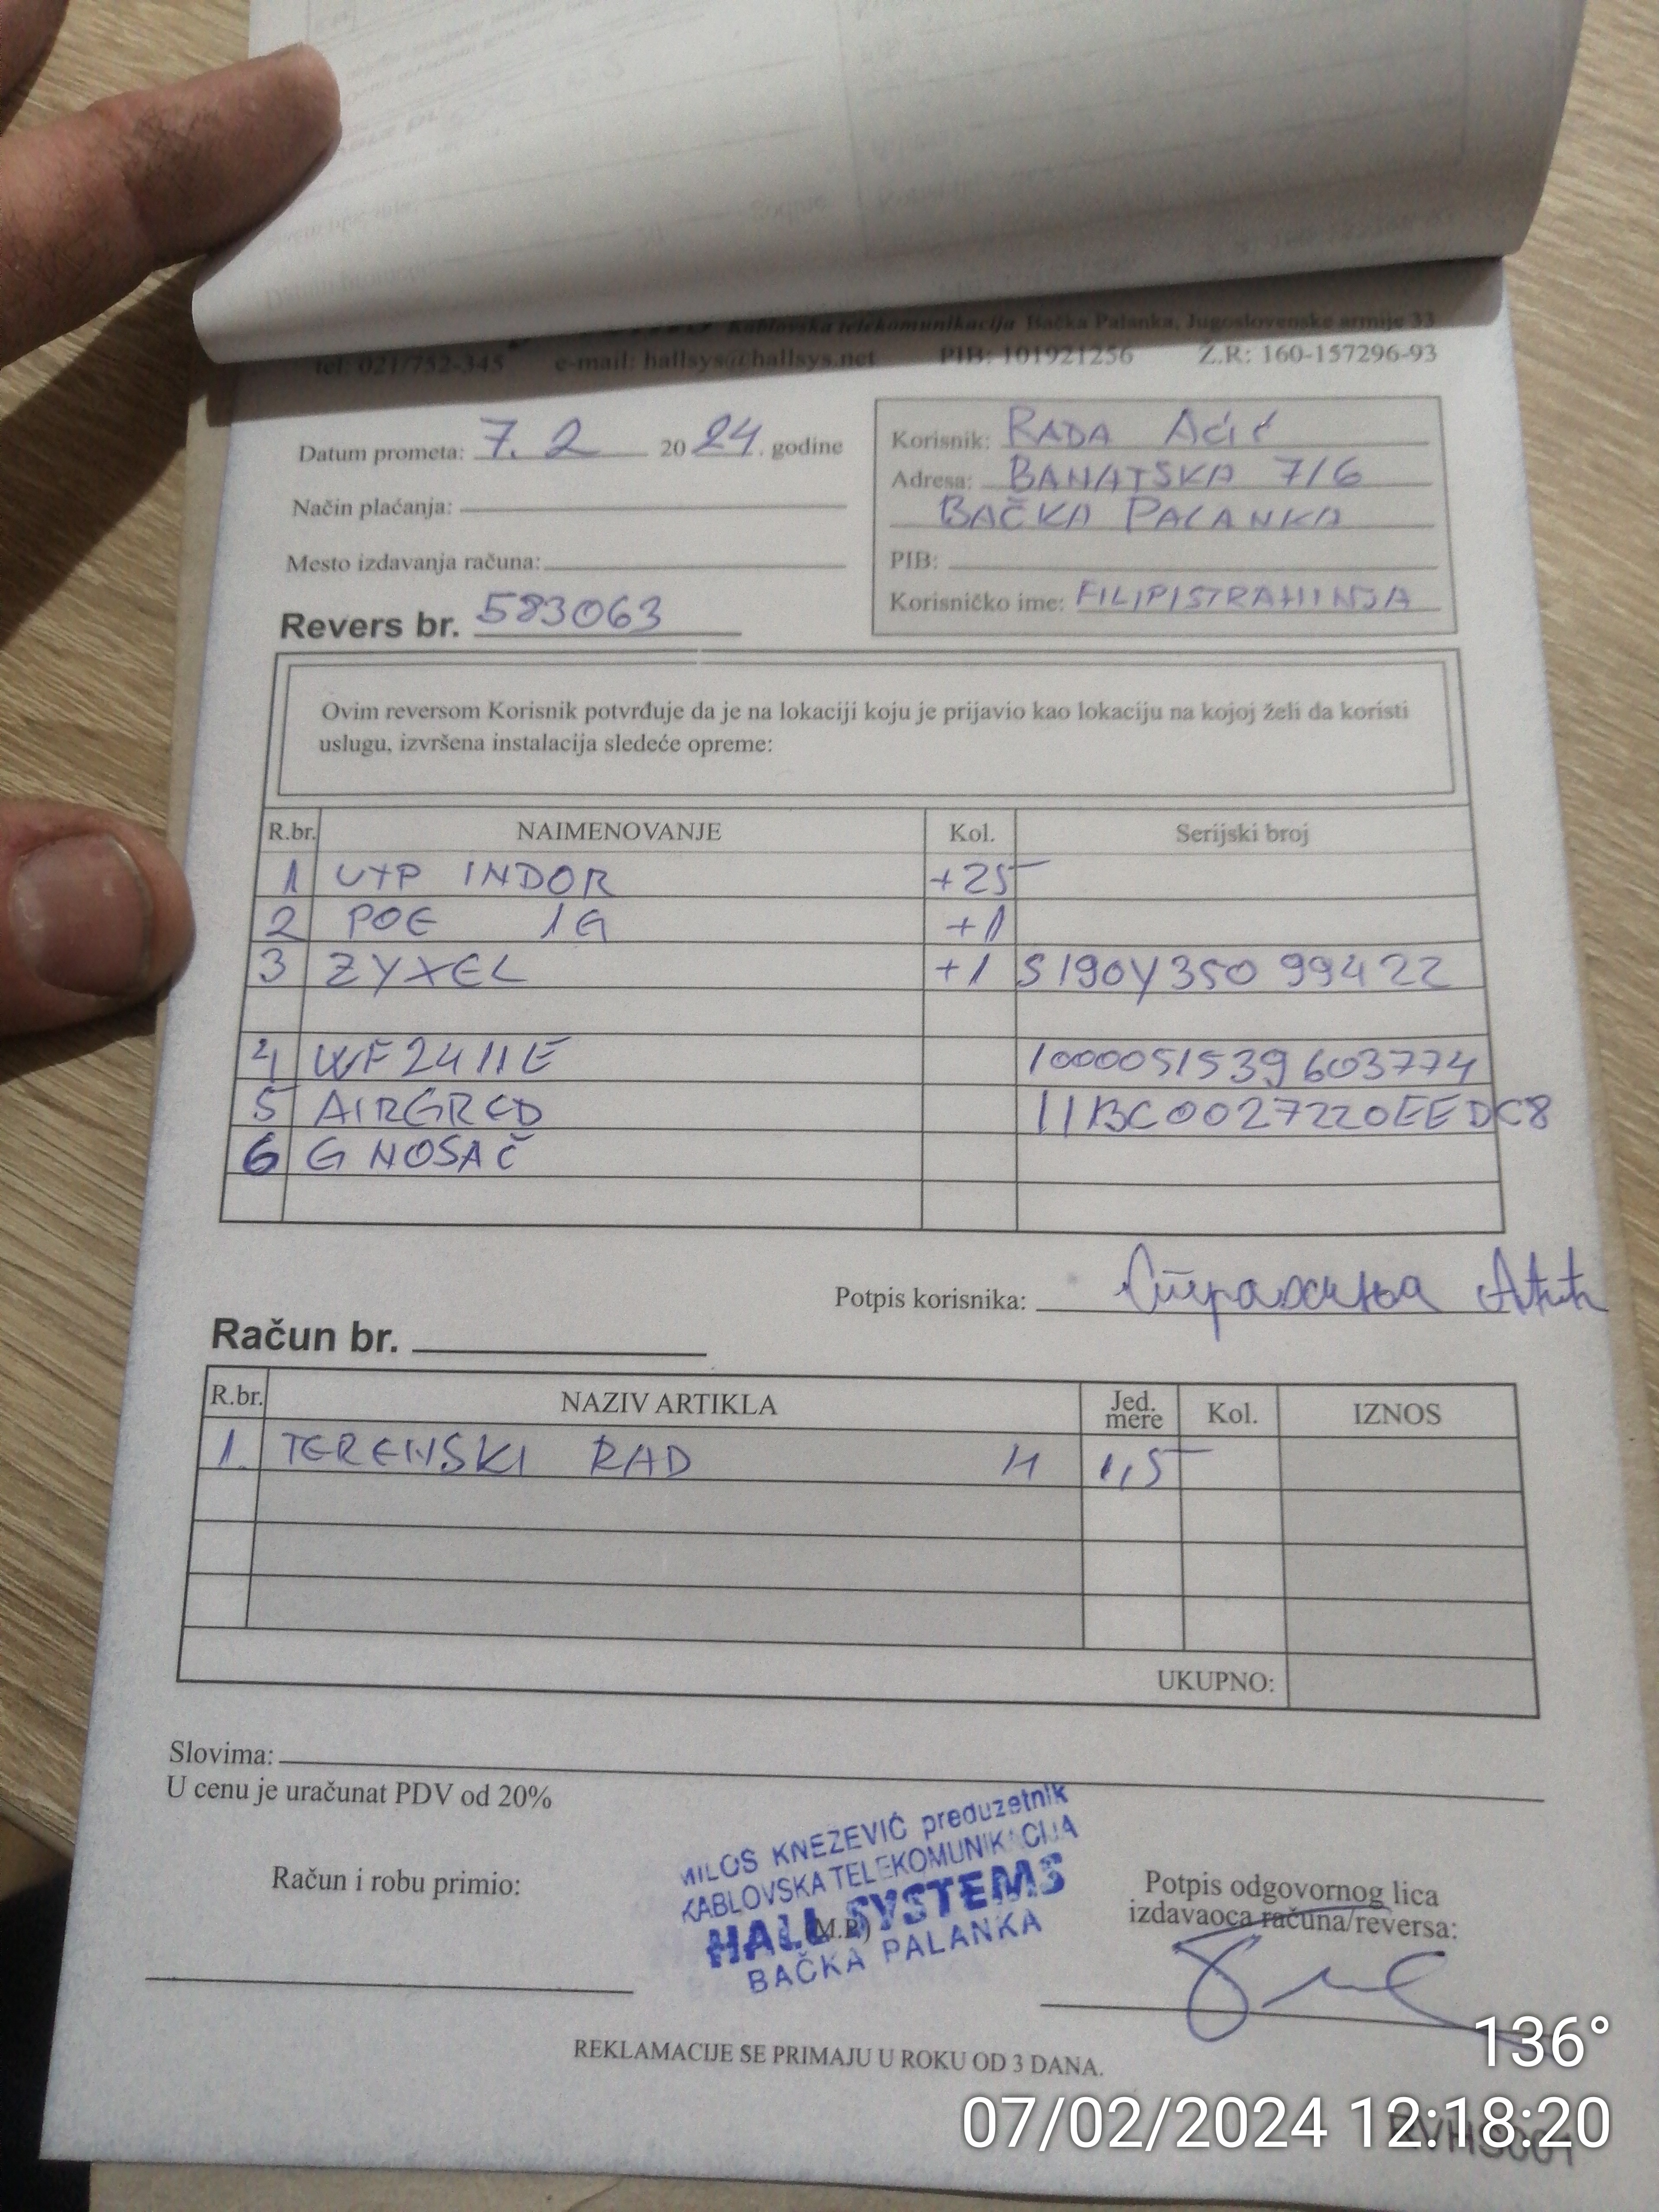 Kablovska telekomunikacija Bačka Palanka, Jugoslovenske armije 33
tel: 021/752-345 e-mail: hallsys@hallsys.net PIB: 101921256 Ž.R: 160-157296-93
Datum prometa: 7. 2 2024. godine
Način plaćanja:
Mesto izdavanja računa:
Revers br. 583063
Korisnik: RADA Aćić
Adresa: BANATSKA 7/6
BAČKA PALANKA
PIB:
Korisničko ime: FILIPISTRAHINJA
Ovim reversom Korisnik potvrđuje da je na lokaciji koju je prijavio kao lokaciju na kojoj želi da koristi
uslugu, izvršena instalacija sledeće opreme:
R.br. NAIMENOVANJE Kol. Serijski broj
1 UTP INDOR +25
2 POE 1G +1
3 ZYXEL +1 S190Y35099422
4 WF2411E 1000051539603774
5 AIRGRED 11BC0027220EEDC8
6 G NOSAČ
Potpis korisnika: Страхиња Аћић
Račun br.
R.br. NAZIV ARTIKLA Jed. mere Kol. IZNOS
1. TERENSKI RAD H 1,5
UKUPNO:
Slovima:
U cenu je uračunat PDV od 20%
MILOS KNEZEVIĆ preduzetnik
KABLOVSKA TELEKOMUNIKACIJA
HALL SYSTEMS
BAČKA PALANKA
Račun i robu primio:
(M.P.)
Potpis odgovornog lica
izdavaoca računa/reversa:
REKLAMACIJE SE PRIMAJU U ROKU OD 3 DANA.
136°
07/02/2024 12:18:20